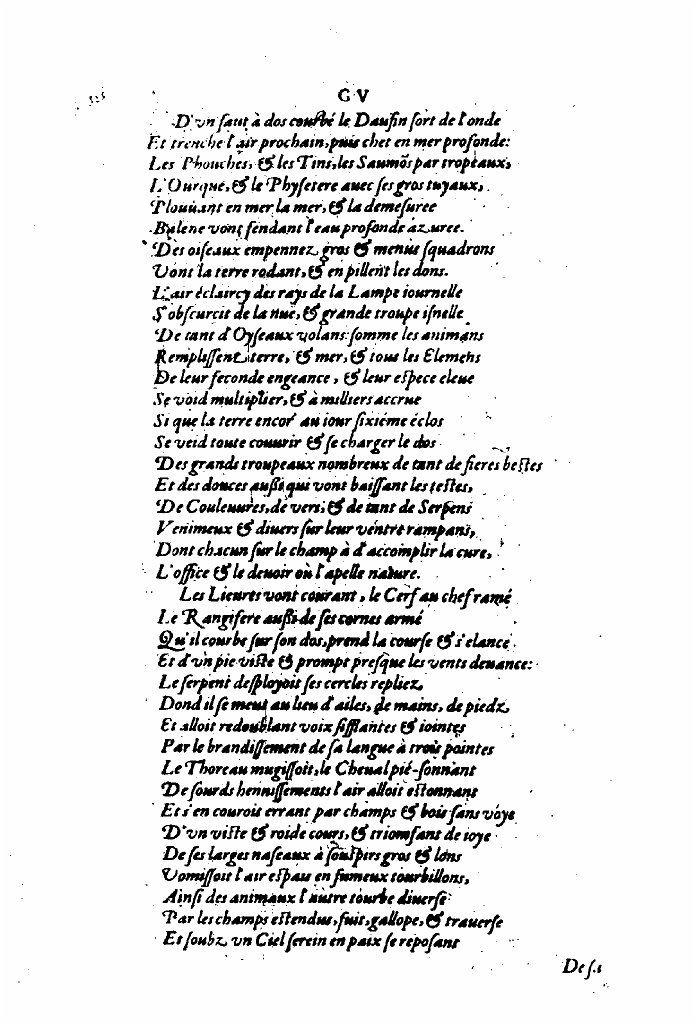 GV
D'vn saut à dos courbé le Daufin sort de l'onde
Et trenche l'air prochain, puis chet en mer profonde:
Les Phouches, & les Tins, les Saumõs par tropeaux,
L'Ourque, & le Physetere auec ses gros tuyaux,
Plouuant en mer la mer, & la demesuree
Balene vont fendant l'eau profonde azuree.
Des oiseaux empennez gros & menus squadrons
Vont la terre rodant, & en pillent les dons.
L'air éclaircy des rays de la Lampe iournelle
S'obscurcit de la nuë, & grande troupe isnelle
De tant d'Oyseaux volans: somme les animans
Remplissent terre, & mer, & tous les Elemens
De leur feconde engeance, & leur espece eleue
Se void multiplier, & à milliers accrue
Si que la terre encor' au iour sixiéme éclos
Se veid toute couurir & se charger le dos
Des grands troupeaux nombreux de tant de fieres bestes
Et des douces aussi qui vont baissant les testes,
De Couleuures, de vers, & de tant de Serpens
Venimeux & diuers sur leur ventre rampans,
Dont chacun sur le champ à d'accomplir la cure,
L'office & le deuoir où l'apelle nature.
Les Lieures vont courant, le Cerf au chef ramé
Le Rangifere aussi de ses cornes armé
Qu'il courbe sur son dos, prend la course & s'elance
Et d'vn pie viste & prompt presque les vents deuance:
Le serpent desployoit ses cercles repliez
Dond il se meut au lieu d'ailes, de mains, de piedz
Et alloit redoublant voix sifflantes & iointes
Par le brandissement de sa langue à trois pointes
Le Thoreau mugissoit, le Cheual pié-sonnant
De sourds hennissements l'air alloit estonnant
Et s'en couroit errant par champs & bois sans voye
D'vn viste & roide cours, & triomfant de ioye
De ses larges naseaux à souspirs gros & lons
Vomissoit l'air espais en fumeux tourbillons,
Ainsi des animaux l'autre tourbe diuerse
Par les champs estendus, fuit, gallope, & trauerse
Et soubz vn Ciel serein en paix se reposant
De sa